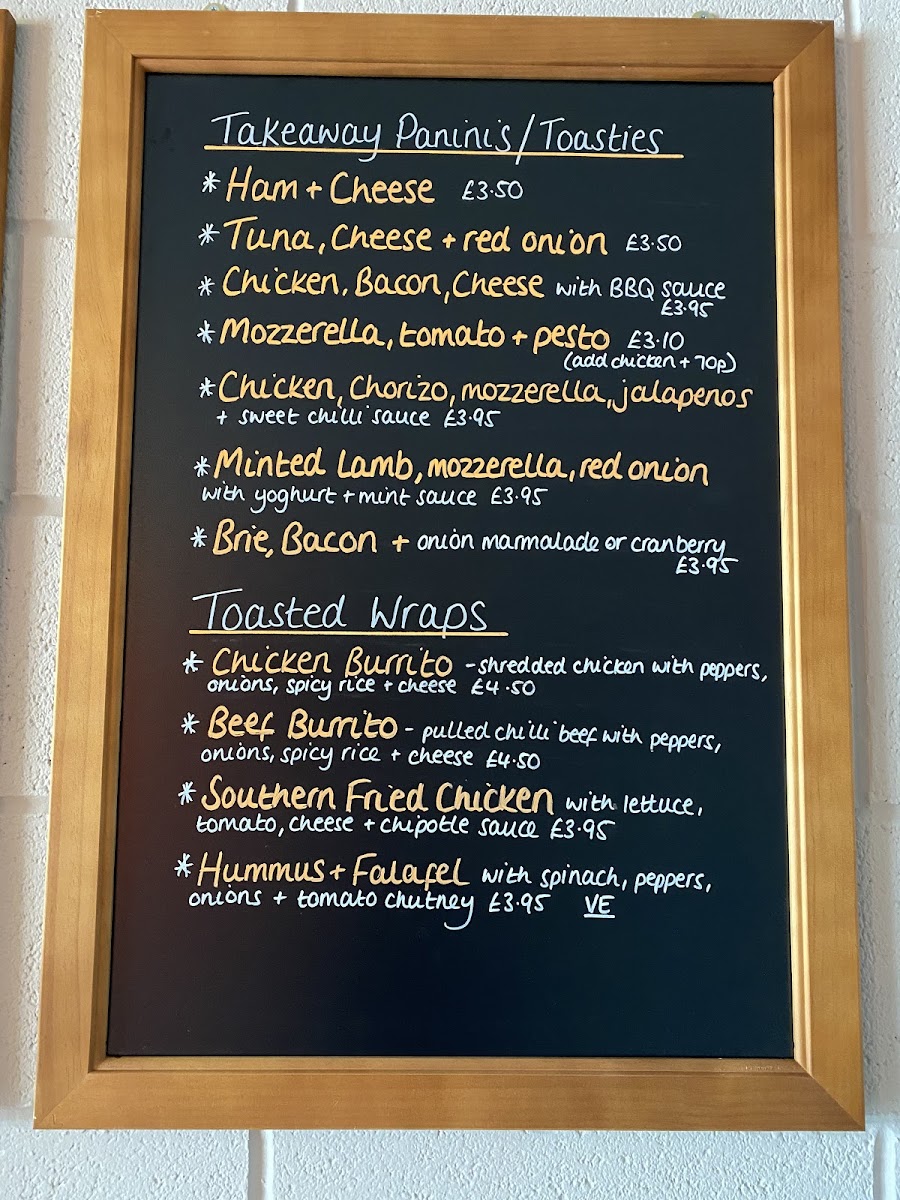 Takeaway Panini's/Toasties
* Ham + Cheese £3.50
* Tuna, Cheese + red onion £3.50
* Chicken, Bacon, Cheese with BBQ sauce
£3.95
* Mozzerella, tomato + pesto £3.10
(add chicken + 70p)
* Chicken, Chorizo, mozzerella, jalapenos
+ sweet chilli sauce £3.95
* Minted Lamb, mozzerella, red onion
with yoghurt + mint sauce £3.95
* Brie, Bacon + onion marmalade or cranberry
£3.95
Toasted Wraps
* Chicken Burrito - shredded chicken with peppers,
onions, spicy rice + cheese £4.50
* Beef Burrito - pulled chilli beef with peppers,
onions, spicy rice + cheese £4.50
* Southern Fried Chicken with lettuce,
tomato, cheese + chipotle sauce £3.95
* Hummus + Falafel with spinach, peppers,
onions + tomato chutney £3.95 VE